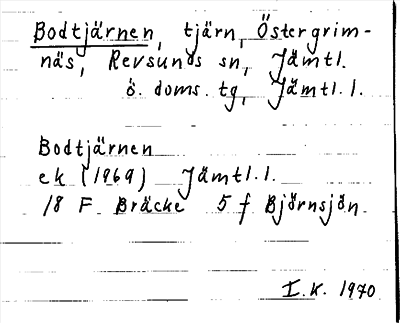 Bodtjärnen, tjärn, Östergrim-
näs, Revsunds sn, Jämtl.
ö. doms. tg, Jämtl. l.
Bodtjärnen
ek (1969) Jämtl. l.
18 F Bräcke 5 f Björnsjön.
I.K. 1970